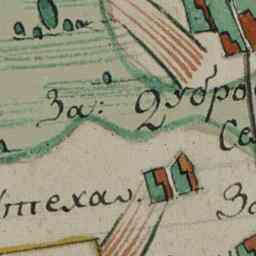 За: Дубро
Се
Утеха.
За